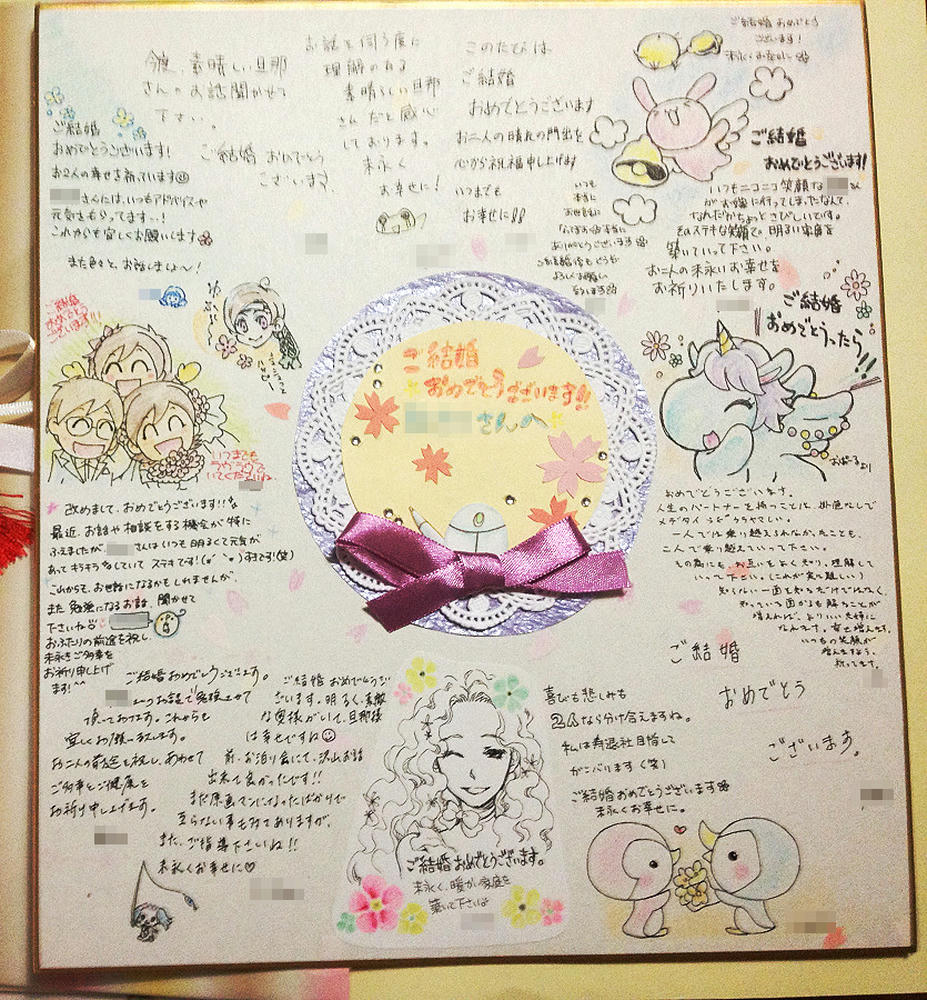 今度、素晴しい旦那
さんのお話聞かせて
下さい。
ご結婚 おめでとう
ございます。
お話を伺う度に
理解のある
素晴しい旦那
さんだと感心
しております。
末永く
お幸せに！
このたびは
ご結婚
おめでとうございます
お二人の晴れの門出を
心から祝福申し上げます
いつまでも
お幸せに!!
ご結婚おめでとう
ございます！
末永くお幸せに
ご結婚
おめでとうございます!
いつもニコニコ笑顔な さん
がお嫁に行ってしまったなんて、
なんだかちょっとさびしいです。
そのステキな笑顔で、明るい家庭を
築いていって下さい。
お二人の末永いお幸せを
お祈りいたします。
いつも
本当に
お世話に
なってお
ありがとうございます
ご結婚後もどうぞ
よろしくお願い
ご結婚
おめでとうございます!
お2人の幸せを祈っています
さんには、いつもアドバイスや
元気をもらってます〜!
これからも宜しくお願いします
また色々と、お話しましょ〜!
ご結婚
おめでとう
ございます!!!
いつまでも
ラブラブで
いてくださいね
ご結婚
おめでとうございます!!
さんへ
ご結婚
おめでとうったら!!
おぱーるより
改めまして、おめでとうございます!!
最近、お話や相談をする機会が特に
ふえましたが さんはいつも明るくて元気が
あってキラキラしていて ステキです! すきです!(笑)
これからも、お世話になるかもしれませんが、
また 勉強になるお話、聞かせて
下さいね
おふたりの前途を祝し、
末永きご多幸を
お祈り申し上げ
ます! ^^
おめでとうございます。
人生のパートナーを持つことは
メデタイ
一人では乗り越えられなかったことも、
二人で乗り越えていって下さい。
その為にも、お互いをよく知り、理解して
いって下さい。(これが実に難しい)
知らない一面を知るだけでなく、
知っている面からも解ることが
増えれば、よりいい夫婦に
なれます。幸せ増えます。
いつもの笑顔が
増えますよう、
祈ってます。
ご結婚
おめでとう
ございます。
ご結婚おめでとうございます。
頂いております。これからも
宜しくお願いします。
お二人の前途を祝し、あわせて
ご多幸とご健康を
お祈り申し上げます。
ご結婚おめでとうご
ざいます。明るく、素敵
な奥様がいて、旦那様
は幸せですね
前、お泊り会にて、沢山お話
出来て良かったです!!
まだ原画マンになったばかりで
至らない事も多々ありますが、
また、ご指導下さいね!!
末永くお幸せに♡
ご結婚おめでとうございます。
末永く、暖かい家庭を
築いて下さいね
喜びも悲しみも
2人なら分け合えますね。
私は寿退社目指して
がんばります(笑)
ご結婚おめでとうございます
末永くお幸せに。